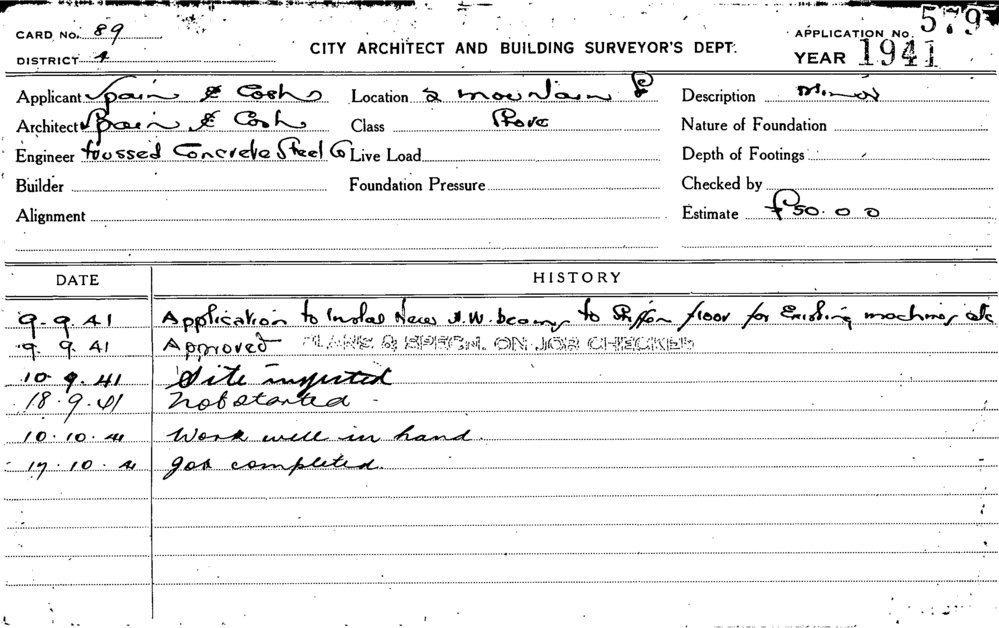 CARD No. 89
DISTRICT 4
CITY ARCHITECT AND BUILDING SURVEYOR'S DEPT.
APPLICATION No. 579
YEAR 1941
Applicant Spain & Cosh Location 2 mountain St Description Minor
Architect Spain & Cosh Class Store Nature of Foundation
Engineer Trussed Concrete Steel Co Live Load Depth of Footings
Builder Foundation Pressure Checked by
Alignment Estimate £50.0 0
DATE HISTORY
9.9.41 Application to Instal New H.W. beams to Stiffen floor for Existing machinery etc
9.9.41 Approved PLANS & SPECN. ON JOB CHECKED
10.9.41 Site inspected
18.9.41 Not started
10.10.41 Work well in hand
17.10.41 Job completed.